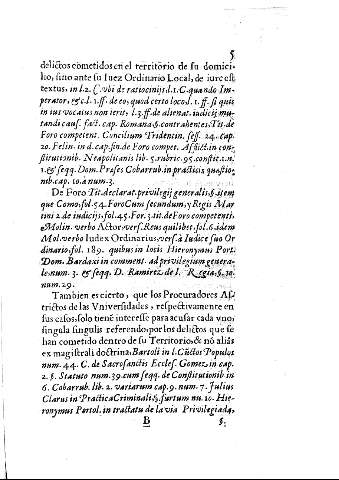 5
delictos cometidos en el territorio de su domici-
lio, sino ante su Iuez Ordinario Local, de iure est
textus, in l.2. C. vbi de ratiocinijs. l.1. C. quando Im-
perator, & c. l. 1. ff. de eo, quod certo loco. l. 1. ff. si quis
in ius vocatus non ierit. l. 3. ff. de alienat. iudicij mu-
tandi caus. fact. cap. Romana §. contrahentes. Tit. de
Foro competent. Concilium Tridentin. sess. 24. cap.
20. Felin. in d. cap. fin. de Foro compet. Afflict. in con-
stitutionib. Neapolitanis lib. 5. rubric. 95. constit. 1. n.
1. & seqq. Dom. Præses Cobarrub. in practicis quæstio-
nib. cap. 10. à num. 3.
De Foro Tit. declarat. privilegij generalis. §. item
que Como. fol. 54. Foro Cum secundum, y Regis Mar
tini 2. de iudicijs. fol. 45. For. 3. tit. de Foro competenti.
& Molin. verbo Actor. vers. Reus quilibet. fol. 6. idem
Mol. verbo Iudex Ordinarius, vers. à Iudice suo Or
dinario. fol. 189. quibus in locis Hieronymus Port.
Dom. Bardaxi in comment. ad privilegium genera-
le. num. 3. & seqq. D. Ramirez de l. Regia. §. 20.
num. 29.
Tambien es cierto, que los Procuradores As-
trictos de las Vniversidades, respectivamente en
sus casos, solo tienē interesse para acusar cada vno
singula singulis referendo, por los delictos que se
han cometido dentro de su Territorio, & nō aliàs
ex magistrali doctrina, Bartoli in l. Cūctos Populos
num. 44. C. de Sacrosanctis Eccles. Gomez, in cap.
2. §. Statuto num. 39. cum seqq. de Constitutionib. in
6. Cobarrub. lib. 2. variarum cap. 9. num. 7. Julius
Clarus in Practica Criminali §. furtum nu. 10. Hie-
ronymus Portol. in tractatu de la via Privilegiada,
B
§.